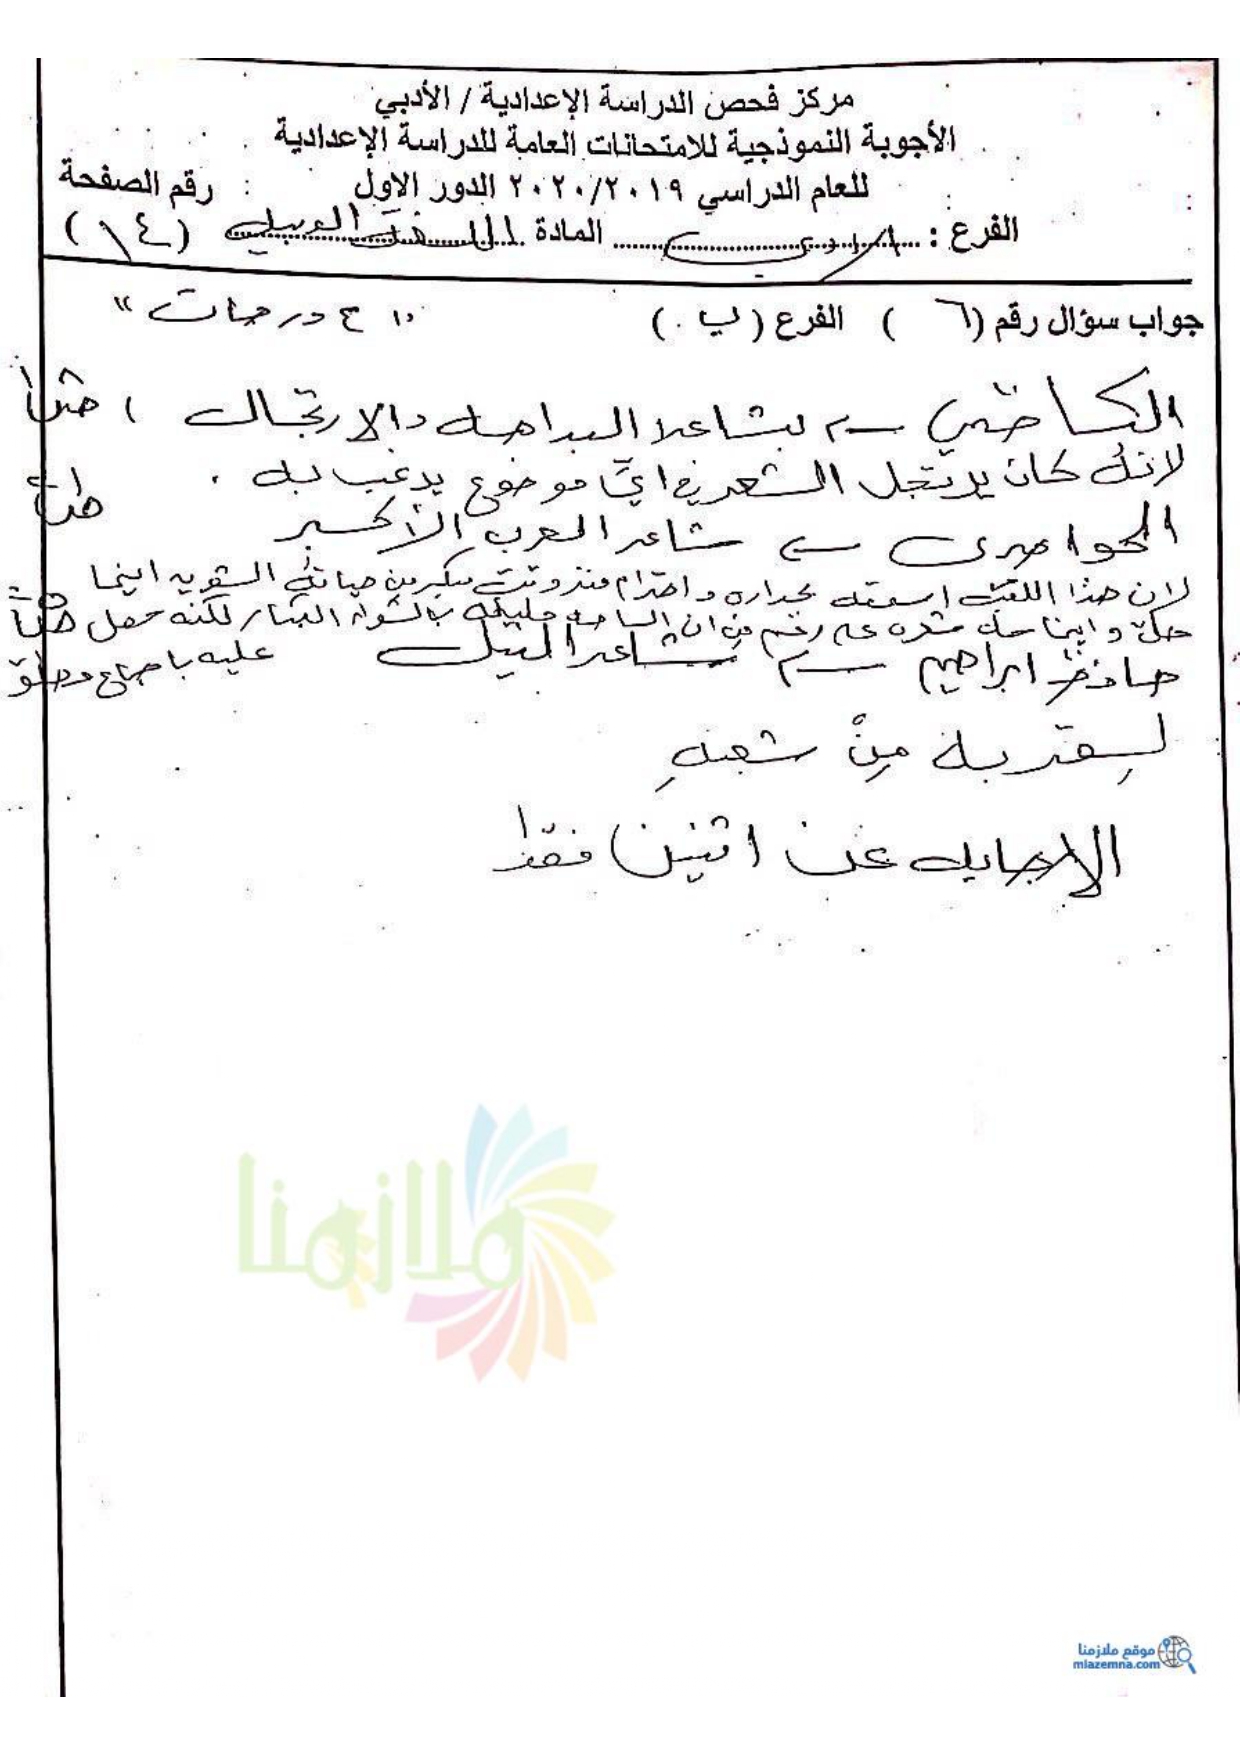 مركز فحص الدراسة الإعدادية / الأدبي
الأجوبة النموذجية للامتحانات العامة للدراسة الإعدادية
للعام الدراسي ٢٠٢٠/٢٠١٩ الدور الاول : رقم الصفحة
الفرع : ادبي المادة اللغة العربية (١٤)
جواب سؤال رقم (٦) الفرع (ب) " ٤ درجات "
الكاظمي بشاعر البداهة والارتجال ،
لانه كان يرتجل الشعر في ايَّ موضوع يرغب به .
الجواهري شاعر العرب الأكبر
لان هذا اللقب استحقه بجداره و منذ وقت مبكر من حياته الشعريه اينما
حلّ و اينما حل شعره على رغم من ان الساحه مليئه بالشعراء الكبار لكنه حصل
حافظ ابراهيم شاعر النيل عليه باجماع
لِقربه مِنْ شعبهِ
الاجابه عن اثنين فقط
ملازمنا
موقع ملازمنا
mlazemna.com